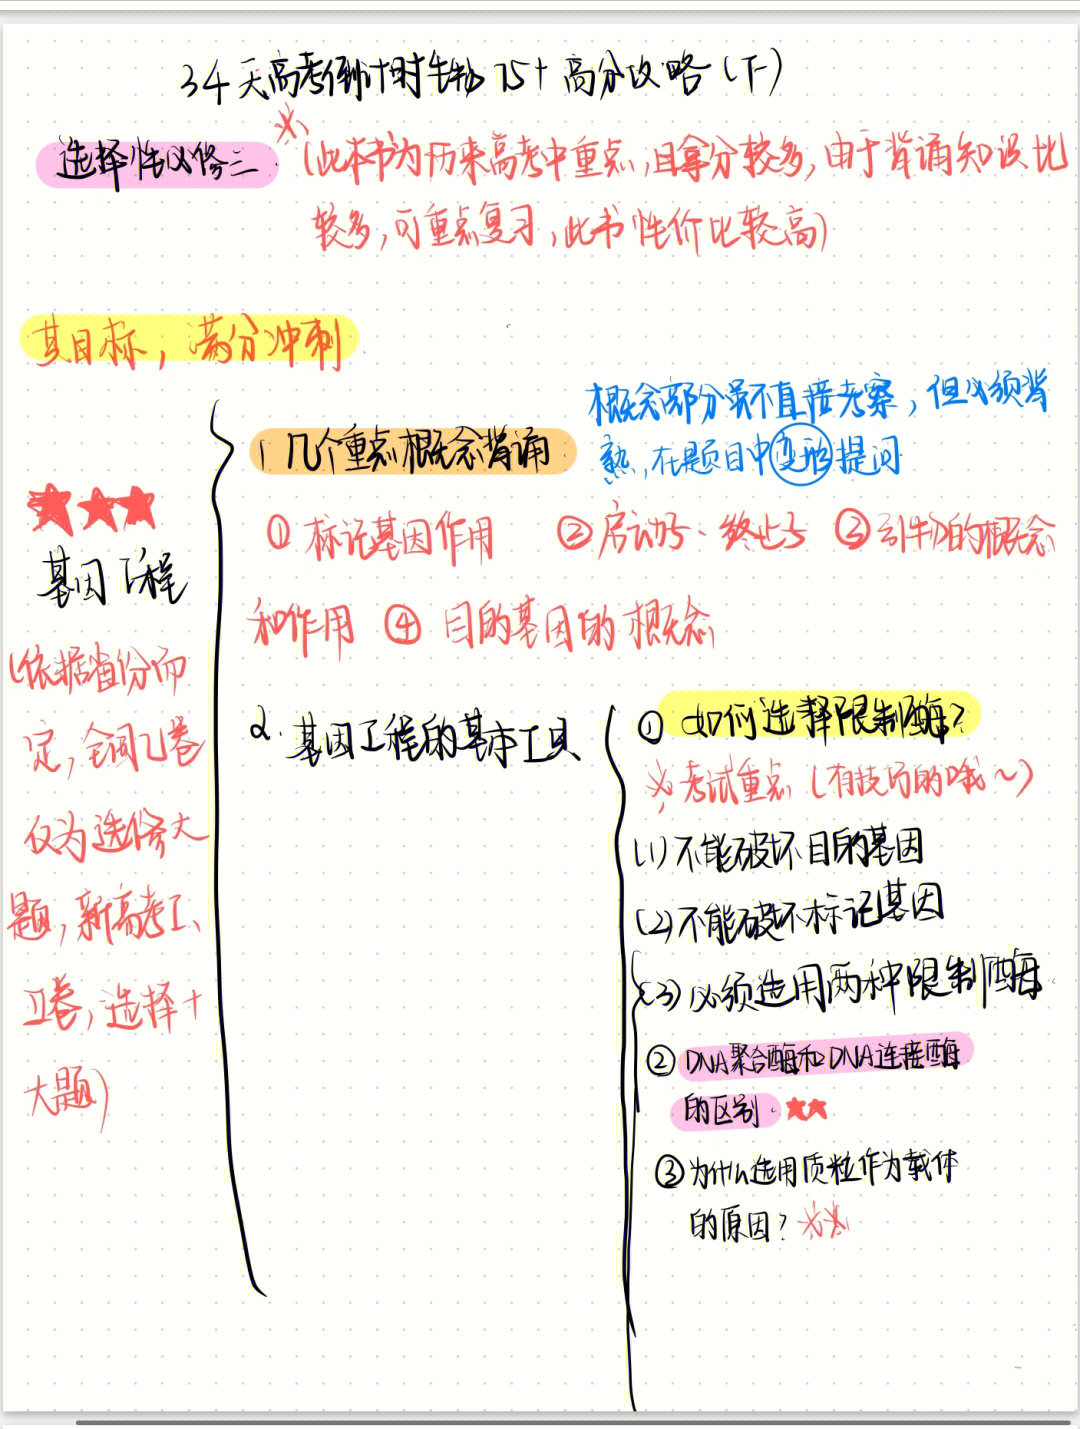 34天高考倒计时生物75+高分攻略(下)
选择性必修三
※(此本书为历来高考中重点,且拿分较多,由于背诵知识比
较多,可重点复习,此书性价比较高)
其目标,满分冲刺
概念部分虽不直接考察,但必须背
熟,在题目中变形提问
1 几个重点概念背诵
① 标记基因作用 ②启动子·终止子 ③引物的概念
和作用 ④ 目的基因的概念
★★★
基因工程
(依据省份而
定,全国乙卷
仅为选修大
题,新高考I、
II卷,选择+
大题)
2.基因工程的基本工具
① 如何选择限制酶?
※考试重点(有技巧的哦~)
(1)不能破坏目的基因
(2)不能破坏标记基因
(3)必须选用两种限制酶
② DNA聚合酶和DNA连接酶
的区别.★★
③为什么选用质粒作为载体
的原因?※※